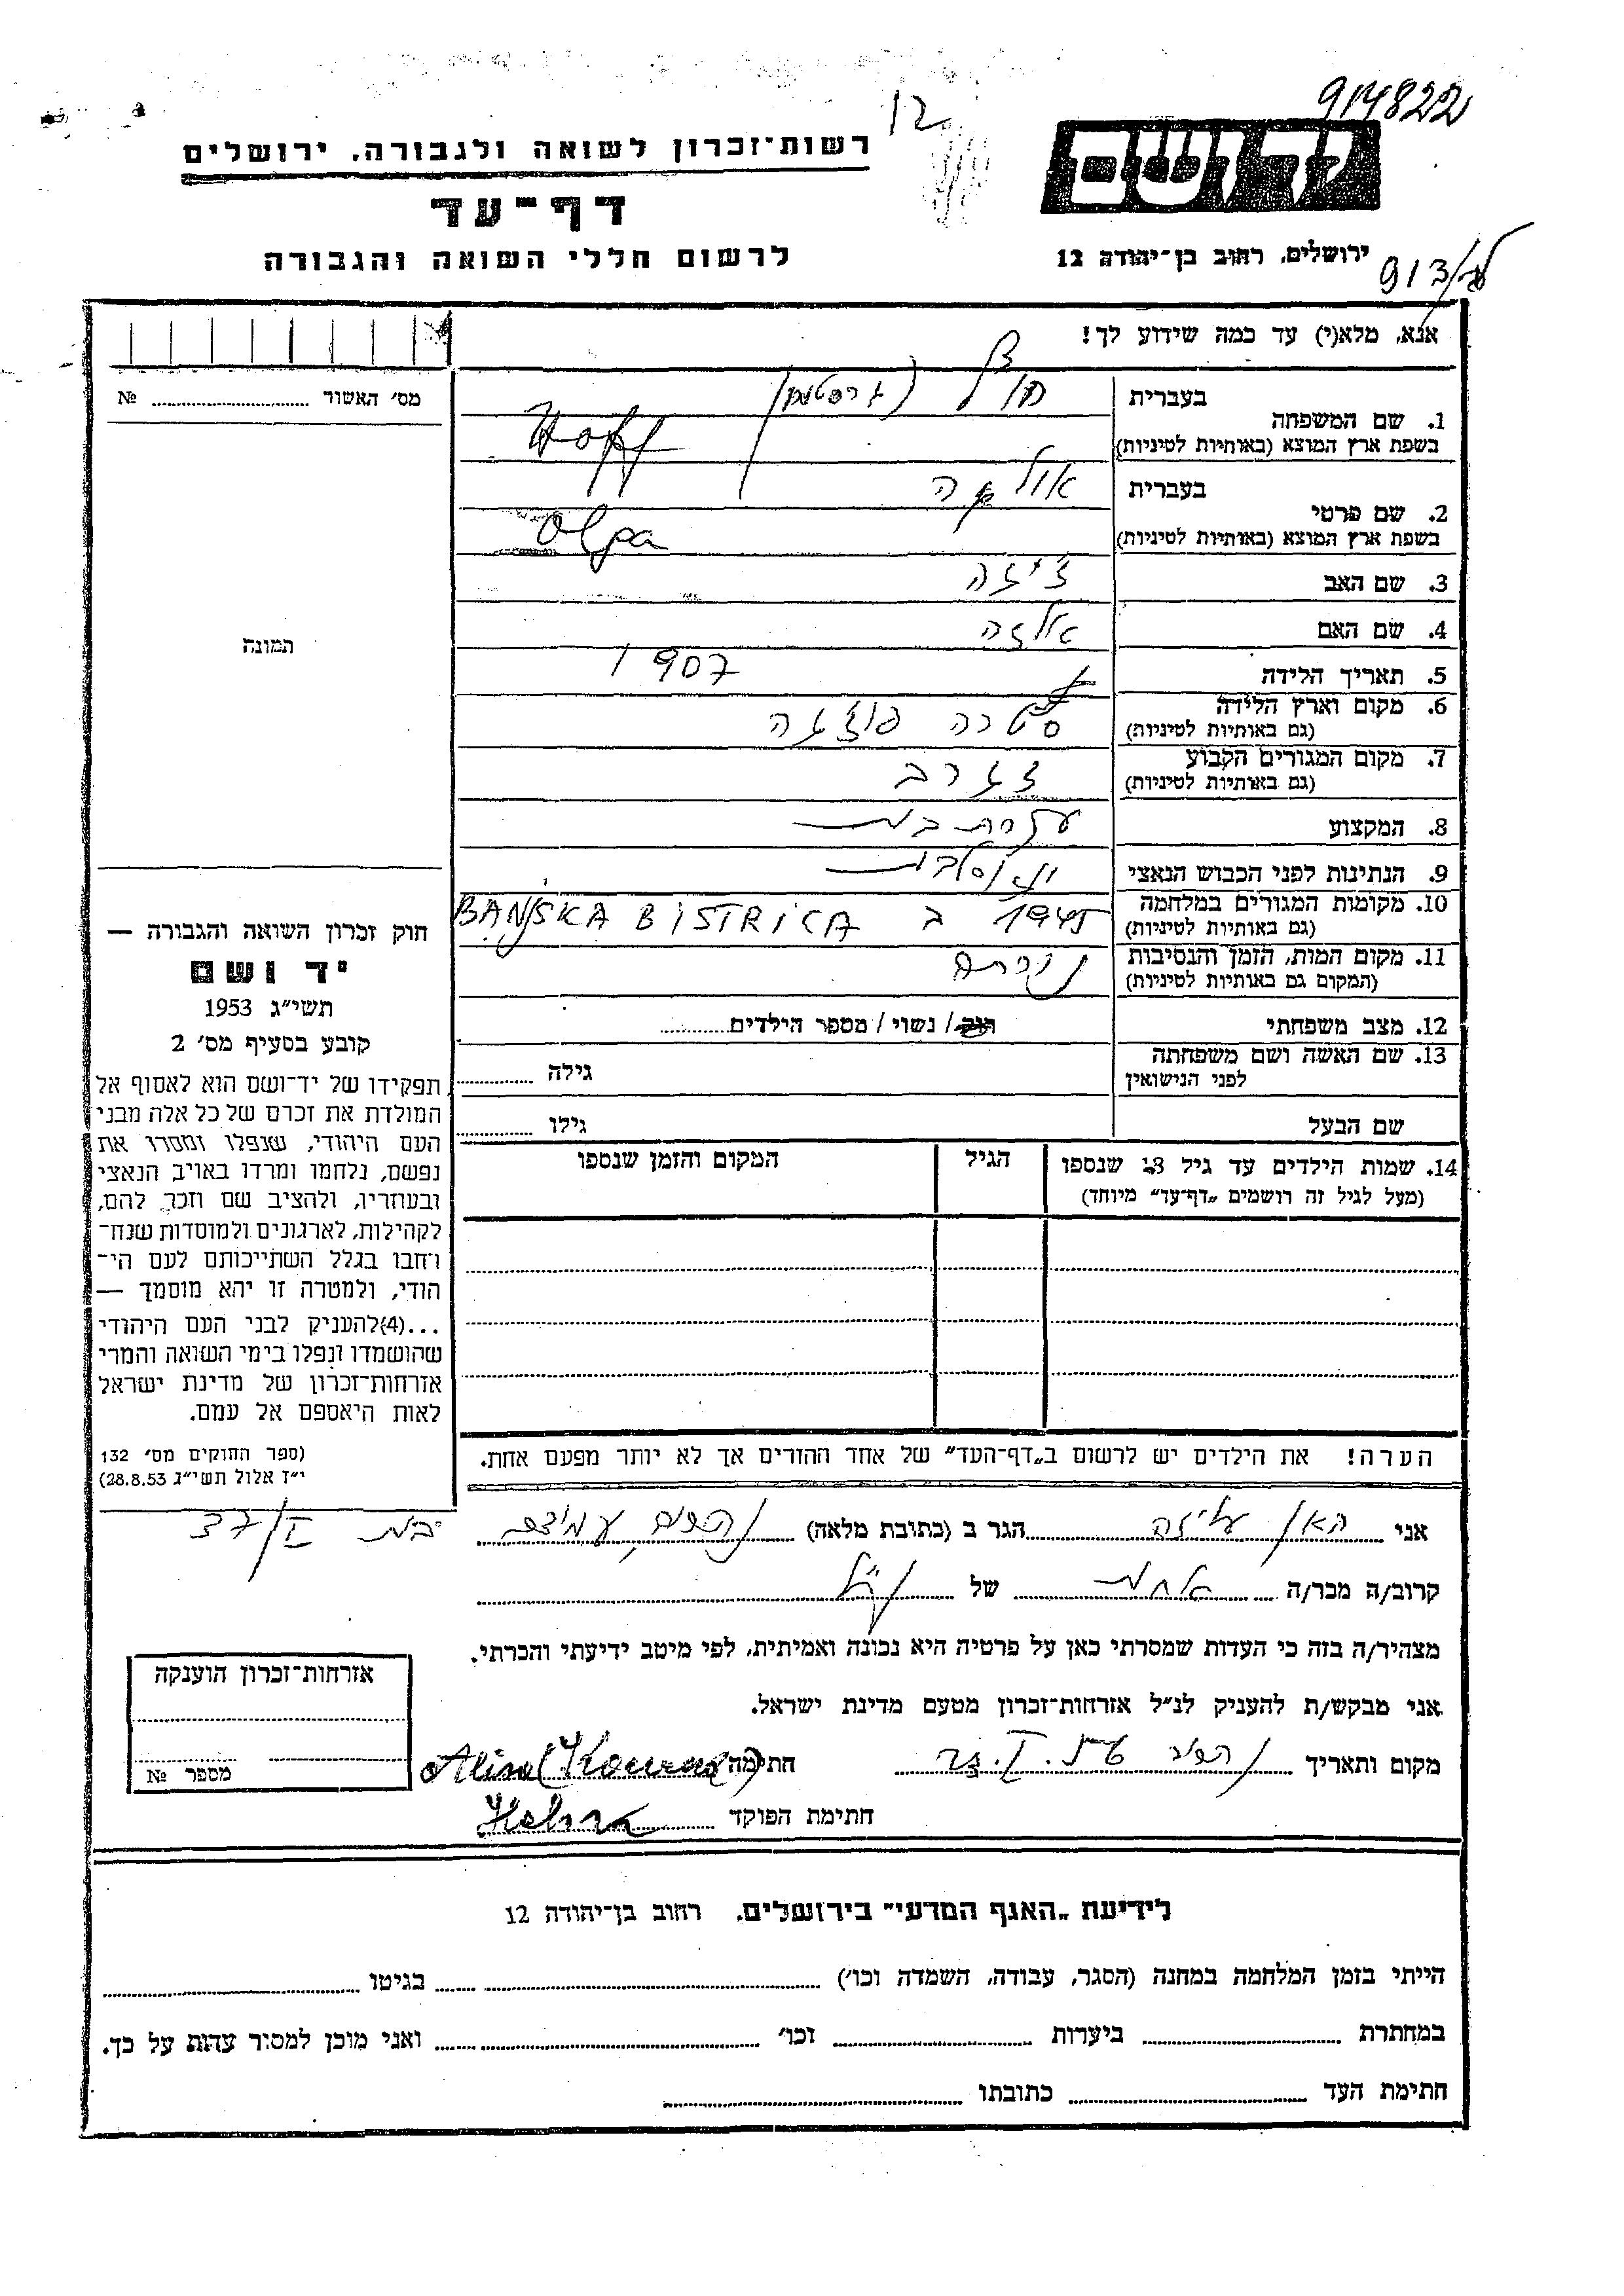 914822
12
רשות־זכרון לשואה ולגבורה, ירושלים
יד ושם
דף־עד
לרשום חללי השואה והגבורה
ירושלים, רחוב בן־יהודה 12
אנא, מלא(י) עד כמה שידוע לך!
מס' האשור № 
1. שם המשפחה
בעברית
בשפת ארץ המוצא (באותיות לטיניות) Hoff
2. שם פרטי
בעברית אולגה
בשפת ארץ המוצא (באותיות לטיניות) Olga
3. שם האב
4. שם האם אלזה
5. תאריך הלידה 1907
6. מקום וארץ הלידה
(גם באותיות לטיניות)
7. מקום המגורים הקבוע זגרב
(גם באותיות לטיניות)
8. המקצוע עקרת בית
9. הנתינות לפני הכבוש הנאצי יוגוסלבית
10. מקומות המגורים במלחמה 1945 ב BANJSKA BISTRICA
(גם באותיות לטיניות)
11. מקום המות, הזמן והנסיבות
(המקום גם באותיות לטיניות)
12. מצב משפחתי רוק / נשוי / מספר הילדים
13. שם האשה ושם משפחתה
לפני הנישואין גילה
שם הבעל גילו
14. שמות הילדים עד גיל 18 שנספו הגיל המקום והזמן שנספו
(מעל לגיל זה רושמים „דף־עד" מיוחד)
הערה! את הילדים יש לרשום ב„דף־העד" של אחד ההורים אך לא יותר מפעם אחת.
תמונה
חוק זכרון השואה והגבורה —
יד ושם
תשי"ג 1953
קובע בסעיף מס' 2
תפקידו של יד־ושם הוא לאסוף אל
המולדת את זכרם של כל אלה מבני
העם היהודי, שנפלו ומסרו את
נפשם, נלחמו ומרדו באויב הנאצי
ובעוזריו, ולהציב שם וזכר להם,
לקהילות, לארגונים ולמוסדות שנח־
רחבו בגלל השתייכותם לעם הי־
הודי, ולמטרה זו יהא מוסמך —
...(4)להעניק לבני העם היהודי
שהושמדו ונפלו בימי השואה והמרי
אזרחות־זכרון של מדינת ישראל
לאות היאספם אל עמם.
(ספר החוקים מס' 132
י"ז אלול תשי"ג 28.8.53)
אני האן עליזה הגר ב (כתובת מלאה) 37/I
קרוב/ה מכר/ה אחות של הנ"ל
מצהיר/ה בזה כי העדות שמסרתי כאן על פרטיה היא נכונה ואמיתית, לפי מיטב ידיעתי והכרתי.
אני מבקש/ת להעניק לנ"ל אזרחות־זכרון מטעם מדינת ישראל.
מקום ותאריך חתימה
חתימת הפוקד
אזרחות־זכרון הוענקה
מספר №
לידיעת „האגף המדעי" בירושלים, רחוב בן־יהודה 12
הייתי בזמן המלחמה במחנה (הסגר, עבודה, השמדה וכו') בגיטו
במחתרת ביערות וכו' ואני מוכן למסור עדות על כך.
חתימת העד כתובתו